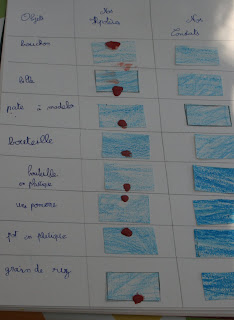 Objets Nos hypothèses Nos Constats
bouchon
bille
pate à modeler
bouteille
bouteille
en plastique
une pomme
pot en plastique
grains de riz